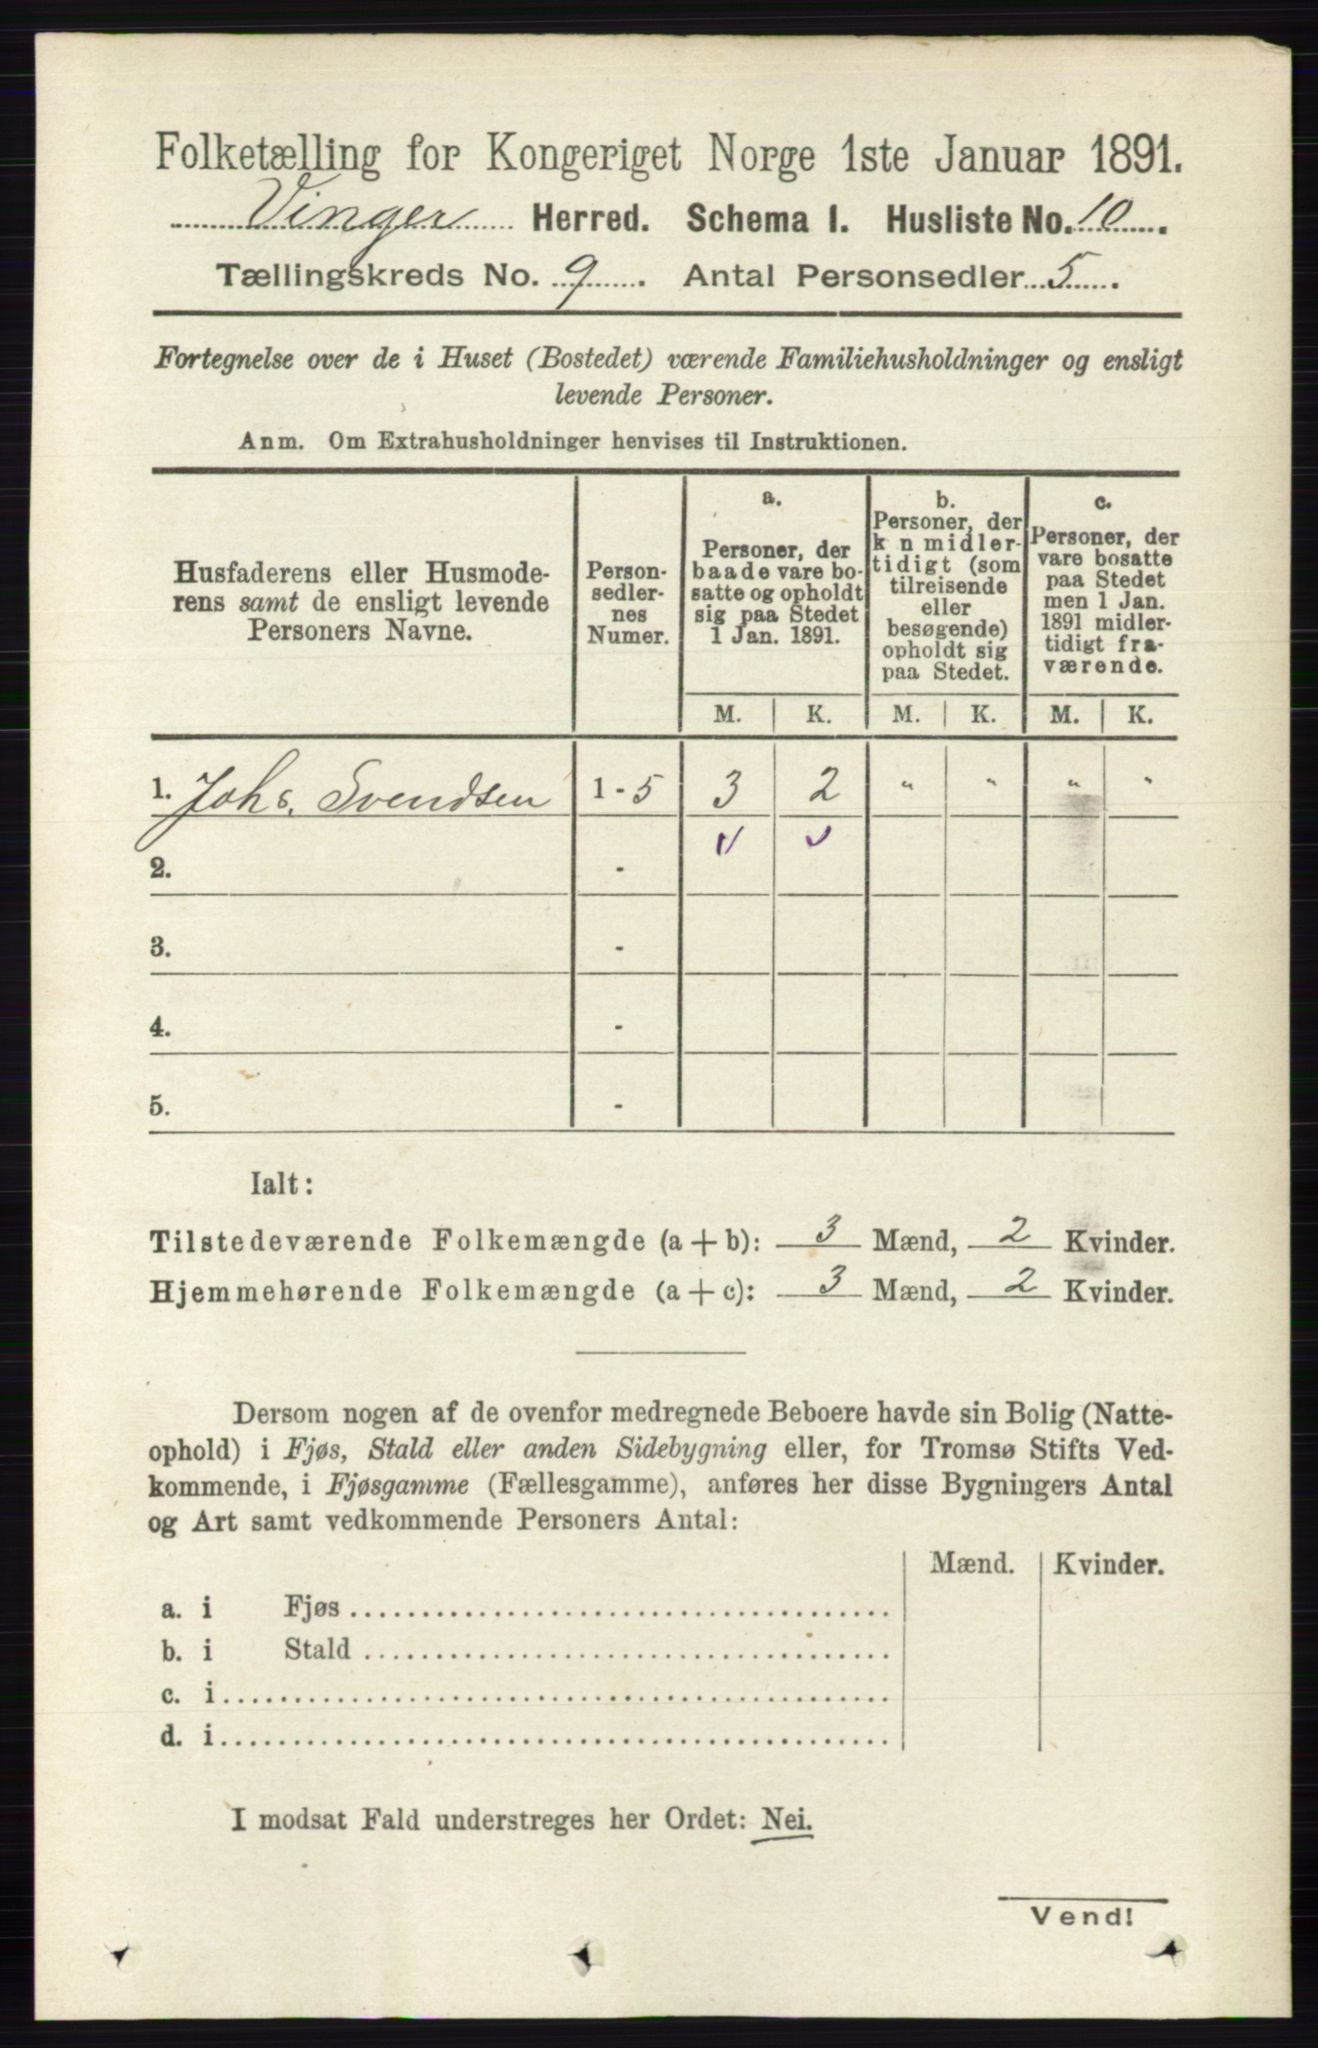 Folketælling for Kongeriget Norge 1ste Januar 1891.
Vinger Herred. Schema I. Husliste No. 10.
Tællingskreds No. 9. Antal Personsedler 5.
Fortegnelse over de i Huset (Bostedet) værende Familiehusholdninger og ensligt
levende Personer.
Anm. Om Extrahusholdninger henvises til Instruktionen.
Husfaderens eller Husmode-
rens samt de ensligt levende
Personers Navne.
Person-
sedler-
nes
Numer.
a.
Personer, der
baade vare bo-
satte og opholdt
sig paa Stedet
1 Jan. 1891.
b.
Personer, der
k n midler-
tidigt (som
tilreisende
eller
besøgende)
opholdt sig
paa Stedet.
c.
Personer, der
vare bosatte
paa Stedet
men 1 Jan.
1891 midler-
tidigt fra-
værende.
M. K. M. K. M. K.
1. Johs. Svendsen 1 - 5 3 2 " " " "
2. -
3. -
4. -
5. -
Ialt:
Tilstedeværende Folkemængde (a + b): 3 Mænd, 2 Kvinder.
Hjemmehørende Folkemængde (a + c): 3 Mænd, 2 Kvinder.
Dersom nogen af de ovenfor medregnede Beboere havde sin Bolig (Natte-
ophold) i Fjøs, Stald eller anden Sidebygning eller, for Tromsø Stifts Ved-
kommende, i Fjøsgamme (Fællesgamme), anføres her disse Bygningers Antal
og Art samt vedkommende Personers Antal:
Mænd. Kvinder.
a. i Fjøs
b. i Stald
c. i
d. i
I modsat Fald understreges her Ordet: Nei.
Vend!